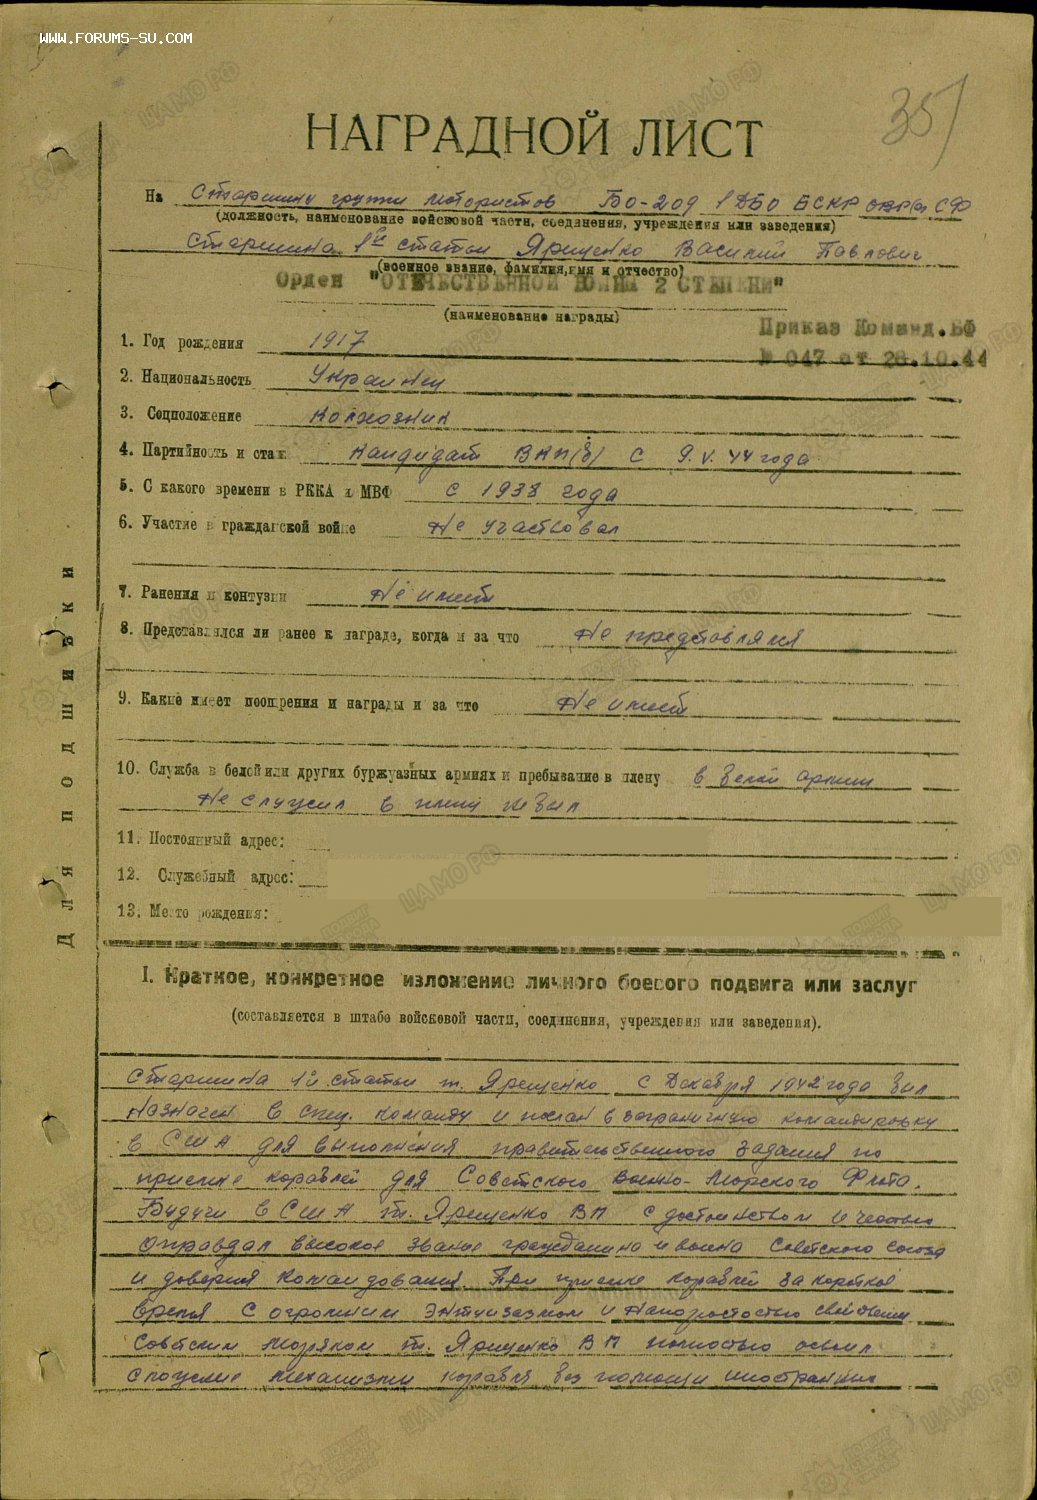 WWW.FORUMS-SU.COM
35
НАГРАДНОЙ ЛИСТ
На Старшину группы мотористов БО-209 1ДБО БСКР ОВРа СФ
(должность, наименование войсковой части, соединения, учреждения или заведения)
старшина 1й статьи Ярещенко Василий Павлович
(военное звание, фамилия, имя и отчество)
Орден "ОТЕЧЕСТВЕННОЙ ВОЙНЫ 2 СТЕПЕНИ"
(наименование награды)
Приказ Команд.БФ
№ 047 от 28.10.44
1. Год рождения 1917
2. Национальность Украинец
3. Соцположение колхозник
4. Партийность и стаж Кандидат ВКП(б) с 9.V.44 года
5. С какого времени в РККА и МВФ с 1938 года
6. Участие в гражданской войне Не участвовал
7. Ранения и контузии Не имеет
8. Представлялся ли ранее к награде, когда и за что Не представлялся
9. Какие имеет поощрения и награды и за что Не имеет
10. Служба в белой или других буржуазных армиях и пребывание в плену в белой армии
не служил в плену не был
11. Постоянный адрес:
12. Служебный адрес:
13. Место рождения:
Для подшивки
I. Краткое, конкретное изложение личного боевого подвига или заслуг
(составляется в штабе войсковой части, соединения, учреждения или заведения).
Старшина 1й статьи т. Ярещенко с Декабря 1942 года был
назначен в спец. команду и послан в заграничную командировку
в США для выполнения правительственного задания по
приемке кораблей для Советского Военно-Морского Флота.
Будучи в США т. Ярещенко ВП с достоинством и честью
оправдал высокое звание гражданина и воина Советского Союза
и доверия командования. При приемке кораблей за короткое
время с огромным энтузиазмом и
Советским морякам т. Ярещенко ВП полностью освоил
сложные механизмы корабля без помощи иностранных